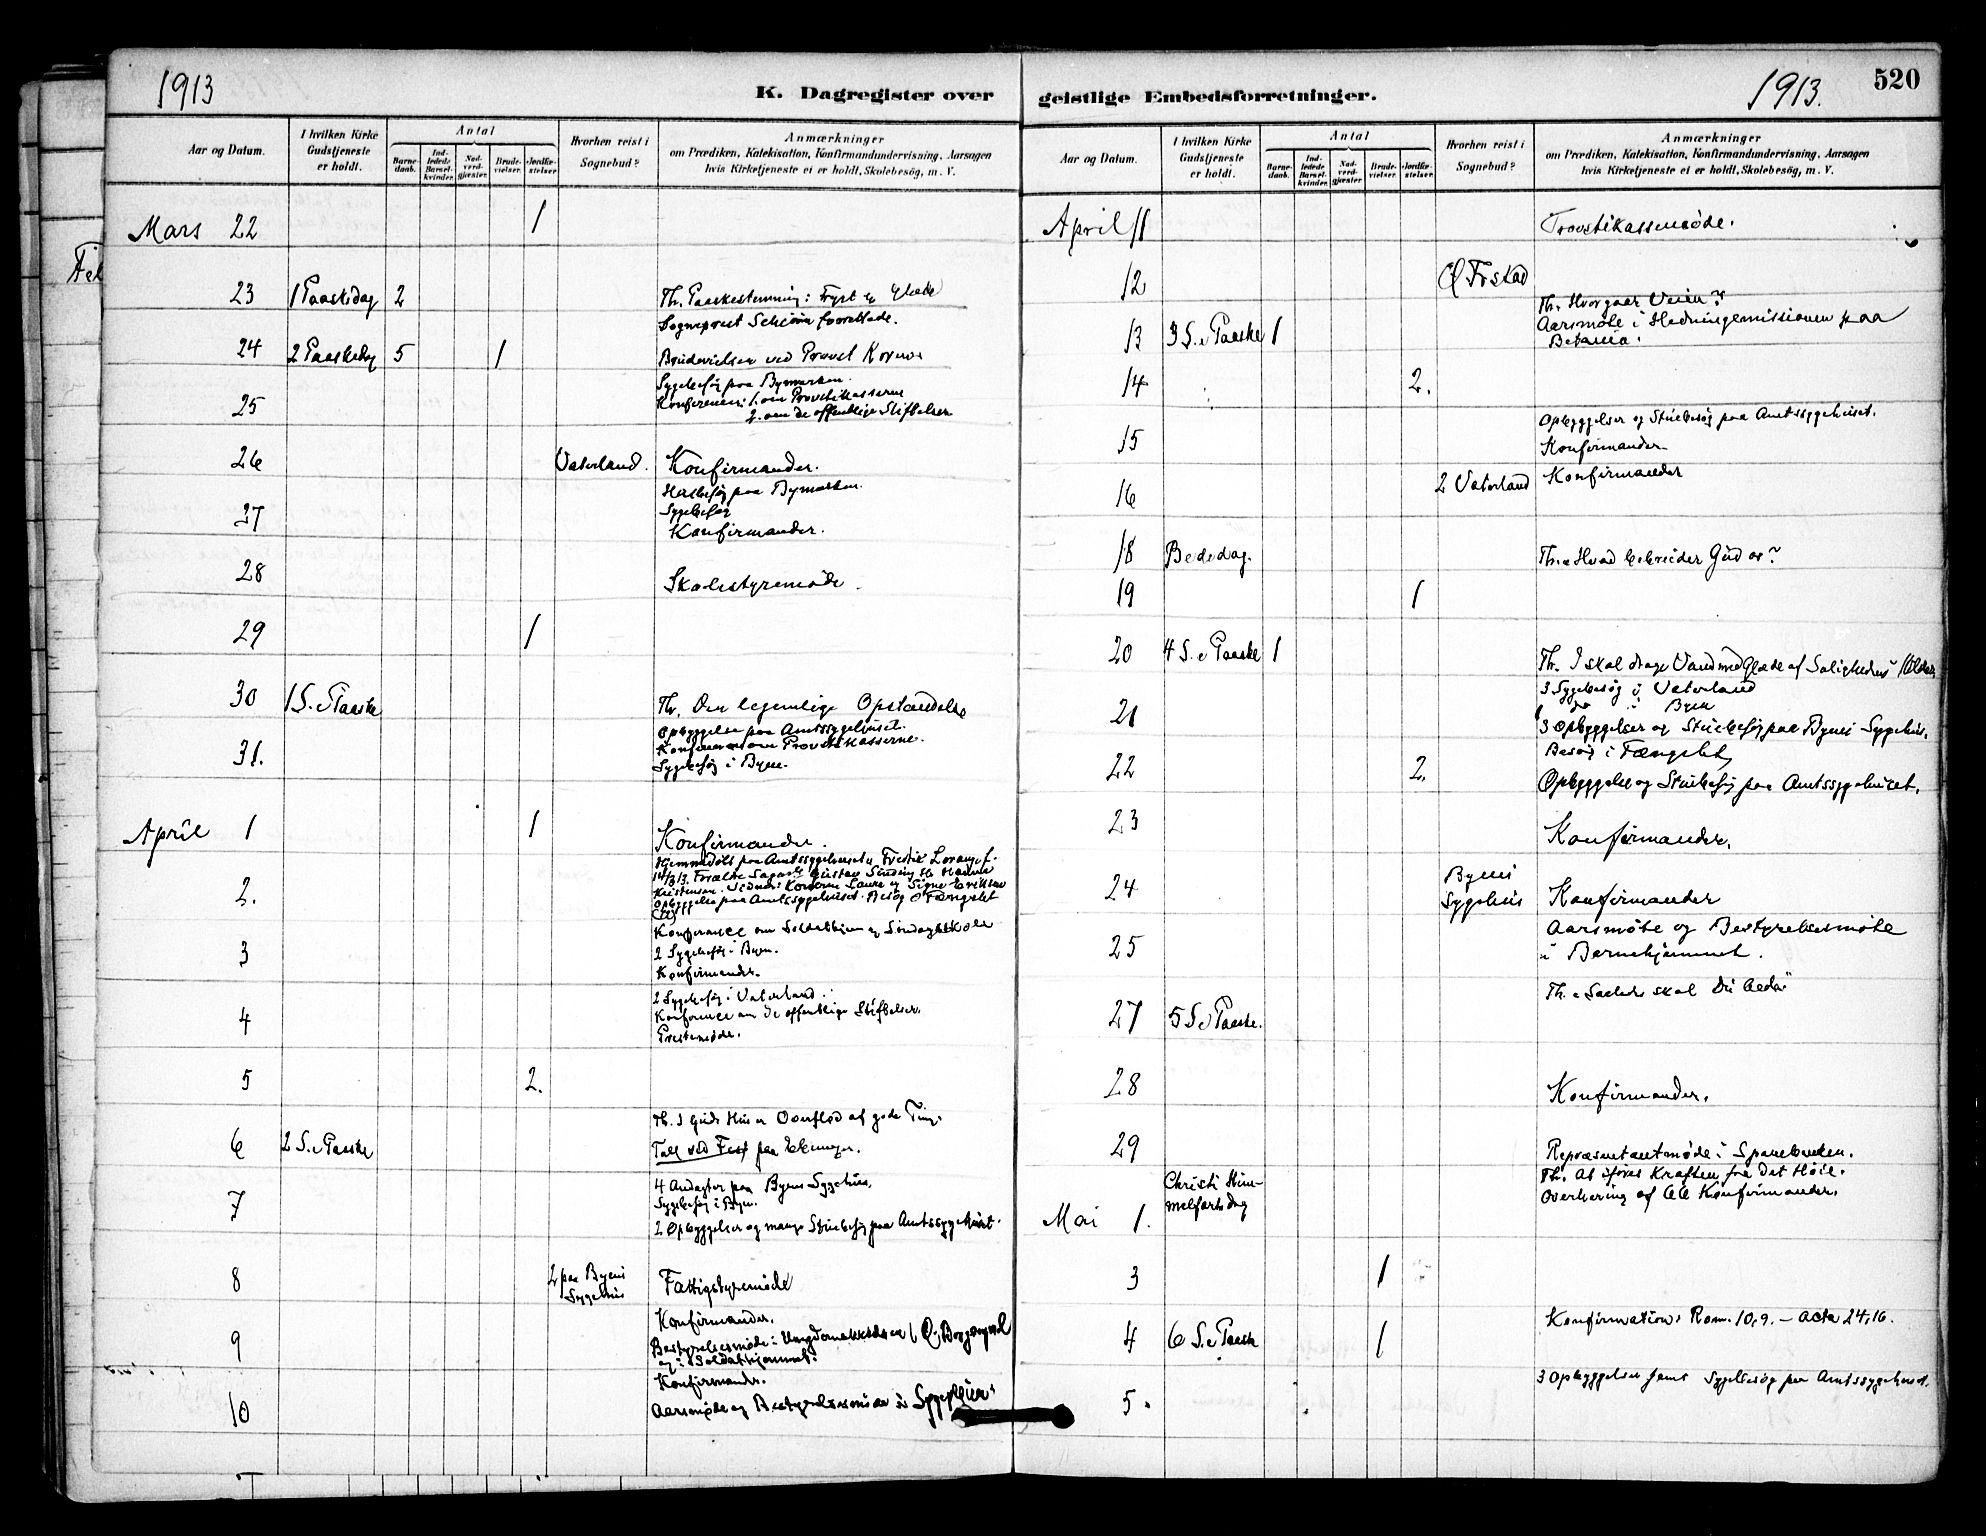 1913
K. Dagregister over
Aar og Datum.
I hvilken Kirke Gudstjeneste er holdt.
Antal
Barnedaab.
Indledede Barselkvinder.
Nadverdgjæster.
Brudevielser.
Jordfæstelser.
Hvorhen reist i Sognebud?
Anmærkninger
om Prædiken, Katekisation, Konfirmandundervisning, Aarsagen
hvis Kirketjeneste ei er holdt, Skolebesög, m. V.
Mars 22 1
23 1 Paaskedag 2 Th. Paaskestemning: Fryst og Glæde
Sogneprest
24 2 Paaskedag 5 1 Brudevielsen ved Provst
Sygebesøg paa Bymarken.
25 Konferencer: 1. om Provstikasserne
2. om de offentlige Stiftelser
26 Vaterland. Konfirmander.
Husbesøg paa Bymarken.
Sygebesøg
27 Konfirmander.
28 Skolestyremøde.
29 1
30 1 S. e Paaske Th. Den legemlige Opstandelse
Opbyggelse paa Amtssygehuset.
31. Konference om Provstikasserne.
Sygebesøg i Byen.
April 1 1 Konfirmander.
Hjemmedøbt paa Amtssygehuset
2. Opbyggelse paa Amtssygehuset. Besøg i Fængslet
Konference om Soldathjem og Søndagsskole
3 2 Sygebesøg i Byen.
Konfirmander.
2 Sygebesøg i Vaterland.
4 Konference om de offentlige Stiftelser.
Prestemøde.
5 2.
Th. I Guds Hus er Overflod af gode Ting.
6 2 S. e Paaske Tale ved Fest paa
4 Andagter paa Byens Sygehus.
7 Sygebesøg i Byen.
2 Opbyggelser og mange Stuebesøg paa Amtssygehuset.
8 2 paa Byens Sygehus Fattigstyremøde
Konfirmander.
9 Bestyrelsesmøde i
og i Soldathjemmet.
Konfirmander.
10 Aarsmøde og Bestyrelsesmøde i
geistlige Embedsforretninger.
1913.
520
Aar og Datum.
I hvilken Kirke Gudstjeneste er holdt.
Antal
Barnedaab.
Indledede Barselkvinder.
Nadverdgjæster.
Brudevielser.
Jordfæstelser.
Hvorhen reist i Sognebud?
Anmærkninger
om Prædiken, Katekisation, Konfirmandundervisning, Aarsagen
hvis Kirketjeneste ei er holdt, Skolebesög, m. V.
April 11 Provstikassemøde.
12 Frstad
Th. Hvor gaar Veien?
13 3 S. e Paaske 1 Aarsmøte i Hedningemissionen paa
Betania.
14 2.
Opbyggelser og Stuebesøg paa Amtssygehuset.
15 Konfirmander
16 2 Vaterland Konfirmander
18 Bededag. Th. Hvad bebreider Gud os?
19 1
20 4 S. e Paaske 1 Th. I skal drage Vand med Glæde af Salighedens Kilder
3 Sygebesøg i Vaterland
21 do i Byen
3 Opbyggelser og Stuebesøg paa Byens Sygehus.
Besøg i Fængslet
22 2. Opbyggelse og Stuebesøg paa Amtssygehuset.
23 Konfirmander.
24 Byens Sygehus Konfirmander
25 Aarsmøte og Bestyrelsesmøte
i Barnehjemmet.
Th. Saaledes skal Du bede
27 5 S. e Paaske.
28 Konfirmander.
29 Repræsentantmøde i Sparebanken.
Mai 1. Christi Himmelfartsdag Th. At iføres Kraften fra det Høie.
Overhøring af 66 Konfirmander.
3 1
4 6 S. e Paaske 1 Konfirmation: Rom. 10,9. – Acta 24,16.
5. 3 Opbyggelser samt Sygebesøg paa Amtssygehuset.